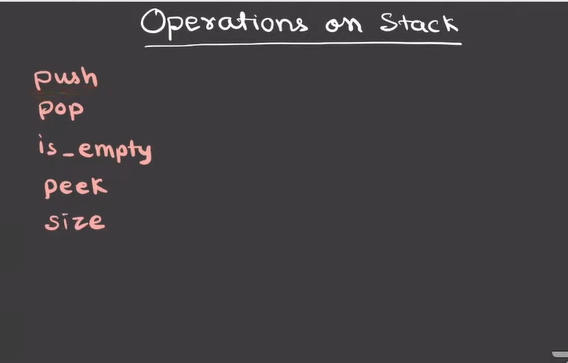 Operations on Stack
push
pop
is_empty
peek
size